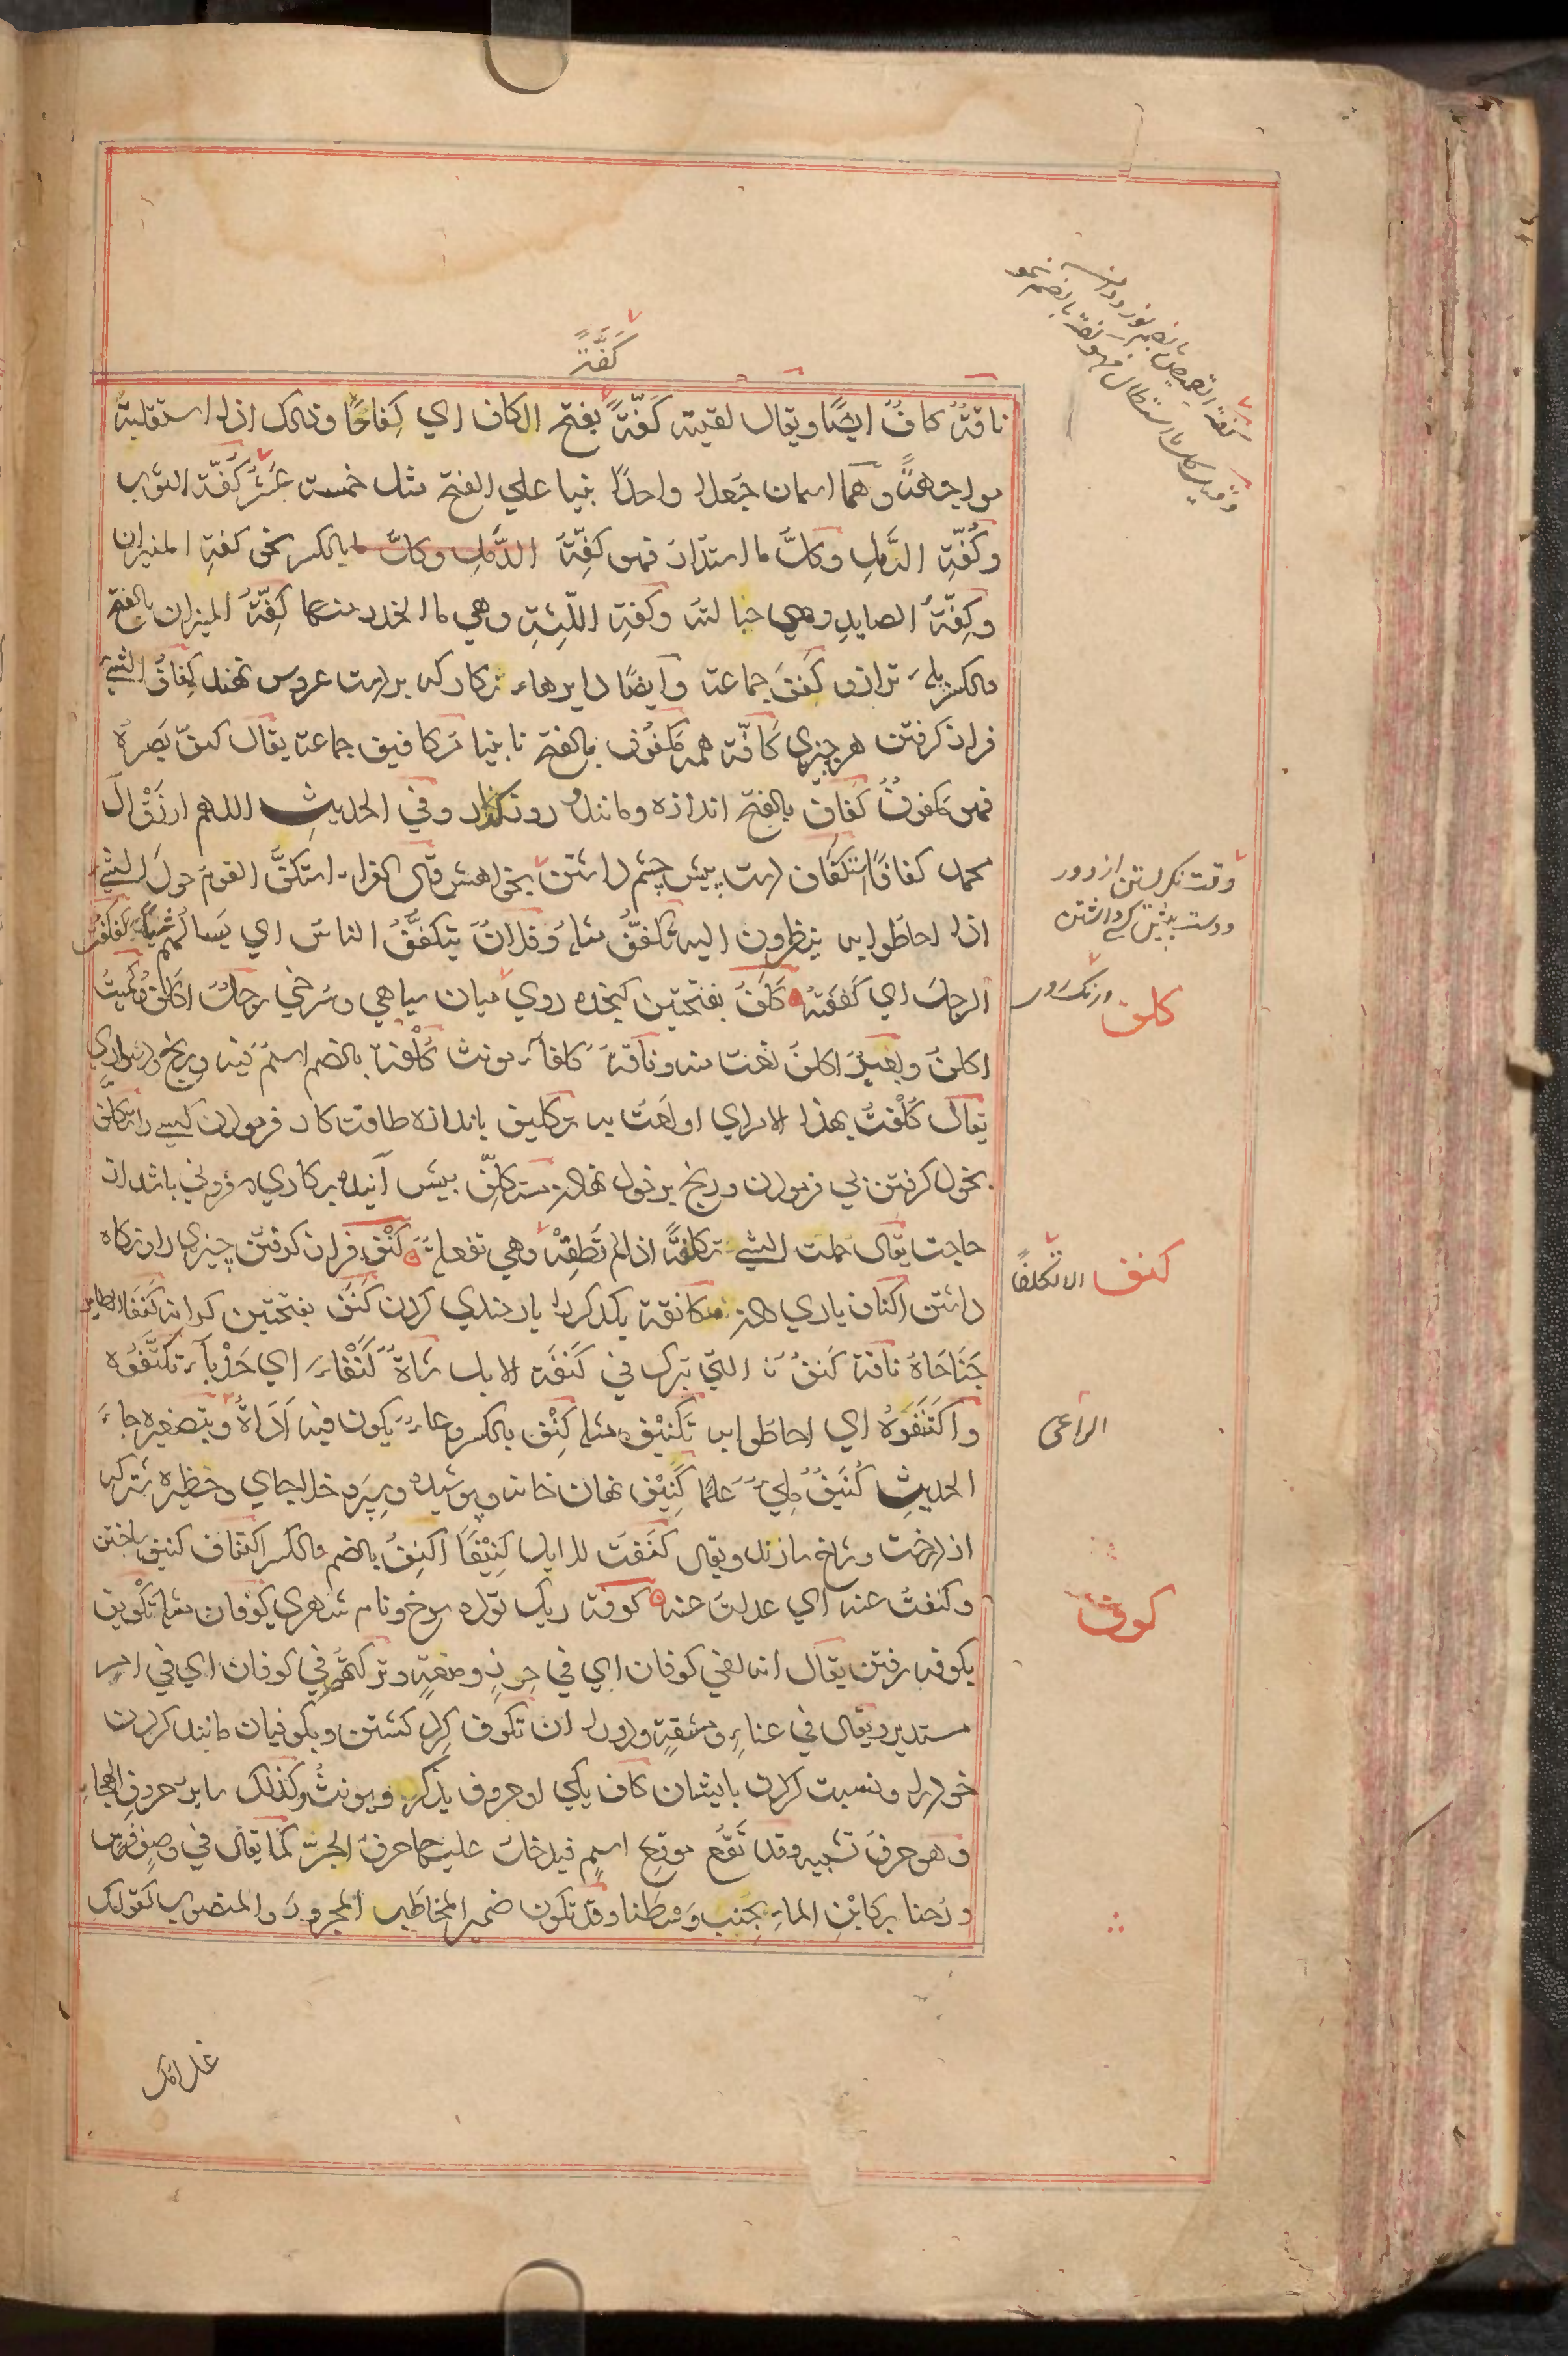 كَفَّةً
ناقةٌ كافٌ ايضًا ويقال لقيته كَفّةً بفتح الكاف اي كِفاحًا وذلك اذا استقبلته
مواجهةً وهما اسمان جُعلا واحدًا بنيا علي الفتح مثل خمسة عَشَرَ كُفّة الثوب
وكُفّةِ الرَّملِ وكلّ ما استدارَ فهو كِفّةٌ بالكسر نحو كفةِ الميزان
وكِفّةُ الصايدِ وهي حبالته وكفةِ اللِّثةِ وهي ما انحدر منها كَفّةُ الميزان بالفتح
والكسر پله ترازو كِفَفَ جماعة وايضًا دايرهاء نكار كه بردست عروس نهند كِفافُ الشيءِ
فراز كرفتن هر چيزي كافّة همه مكفوف بالفتح نابينا مكافيف جماعة يقال كفّ بَصرهُ
فهو مكفوفٌ كَفاف بالفتح اندازه ومانند وروزكذار وفي الحديثِ اللهم ارزُقْ آلَ
محمد كفافًا استكفاف دست پيش چشم داشتن بخواهش قال الفراء استكفَّ القومُ حولَ الشيءِ
اذا احاطوا به ينظرون اليه تكففٌ مثله وفلانٌ يتكففُ الناسَ اي يسألهم كفكفتُ
الرجلَ اي كففته كَلَفٌ بفتحتين كنجده روي ميان سياهي وسُرخي رجلٌ اكلفُ وكُميتٌ
اكلفُ وبعيرٌ اكلفُ نعت منه وناقةٌ كلفاءُ مونث كُلْفة بالضم اسمٌ فيه ورنج ودشواري
يقال كَلِفْتُ بهذا الامر اي اولعتُ به تكليف باندازه طاقت كار فرمودن كسي را تكلّف
بخود كرفتن بي فرمودن ورنج برخود نهادن متكلّف پيش آينده بركاري فزوني باشد از
حاجت يقال حملت الشيءَ تكلفةً اذا لم تُطِقْهُ وهي تفعلةٌ كَنْفٌ فراز كرفتن چيزي را ونكاه
داشتن اكناف ياري دادن مكانفة يكديكر را يارمندي كردن كَنَف بفتحتين كرانه كنفا الطاير
جَنَاحَاهُ ناقة كَنوفٌ التي تبرك في كَنَفَةِ الابل شاةٌ كَنْفاءُ اي حَدْباءُ تكنَّفُوه
واكتَنَفوهُ اي احاطوا به تكنيف مثله كِنْف بالكسر وعاءٌ يكون فيه اَدَاةٌ وبتصغيره جاءَ
الحديثِ كُنَيفٌ مُلِيَ عِلمًا كَنِيْف نهان خانه وپوشيده وسپر وخلاجاي وحظيره شتر كه
از درخت وشاخ سازند ويقال كنفتُ للابل كَنِيْفًا اكنِفُ بالضم والكسر اكتناف كنيف ساختن
وكنفتُ عنه اي عدلتُ عنه كوفة ريك توده سرخ ونام شهري كوفان مثله تكويف
بكوفه رفتن يقال انه لفي كوفان اي في حِرزٍ ومنعةٍ وتركتُهم في كوفان اي في امرٍ
مستدير ويقال في عناءٍ ومشقةٍ ودورانٍ تكوف كِرد كشتن وبكوفيان مانند كردن
خود را ونسبت كردن بايشان كاف يكي از حروف يذكر ويونثُ وكذلك ساير حروفِ الهجاءِ
وهو حرفُ تشبيه وقد تَقَعُ موقع اسمٍ فيدخلُ عليها حرفُ الجرّ كما يقال في وصفِ فرسٍ
ورُحنا بركابْنِ الماءِ يُجنَب وَسْطَنا وقد تكون ضميرَ المخاطَبِ المجرورِ والمنصوبِ كقولك
وقت نكريستن از دور
ودست پيش كسي داشتن
كلف
كنف
الا تكلفًا
الراعي
كوف
غلامك